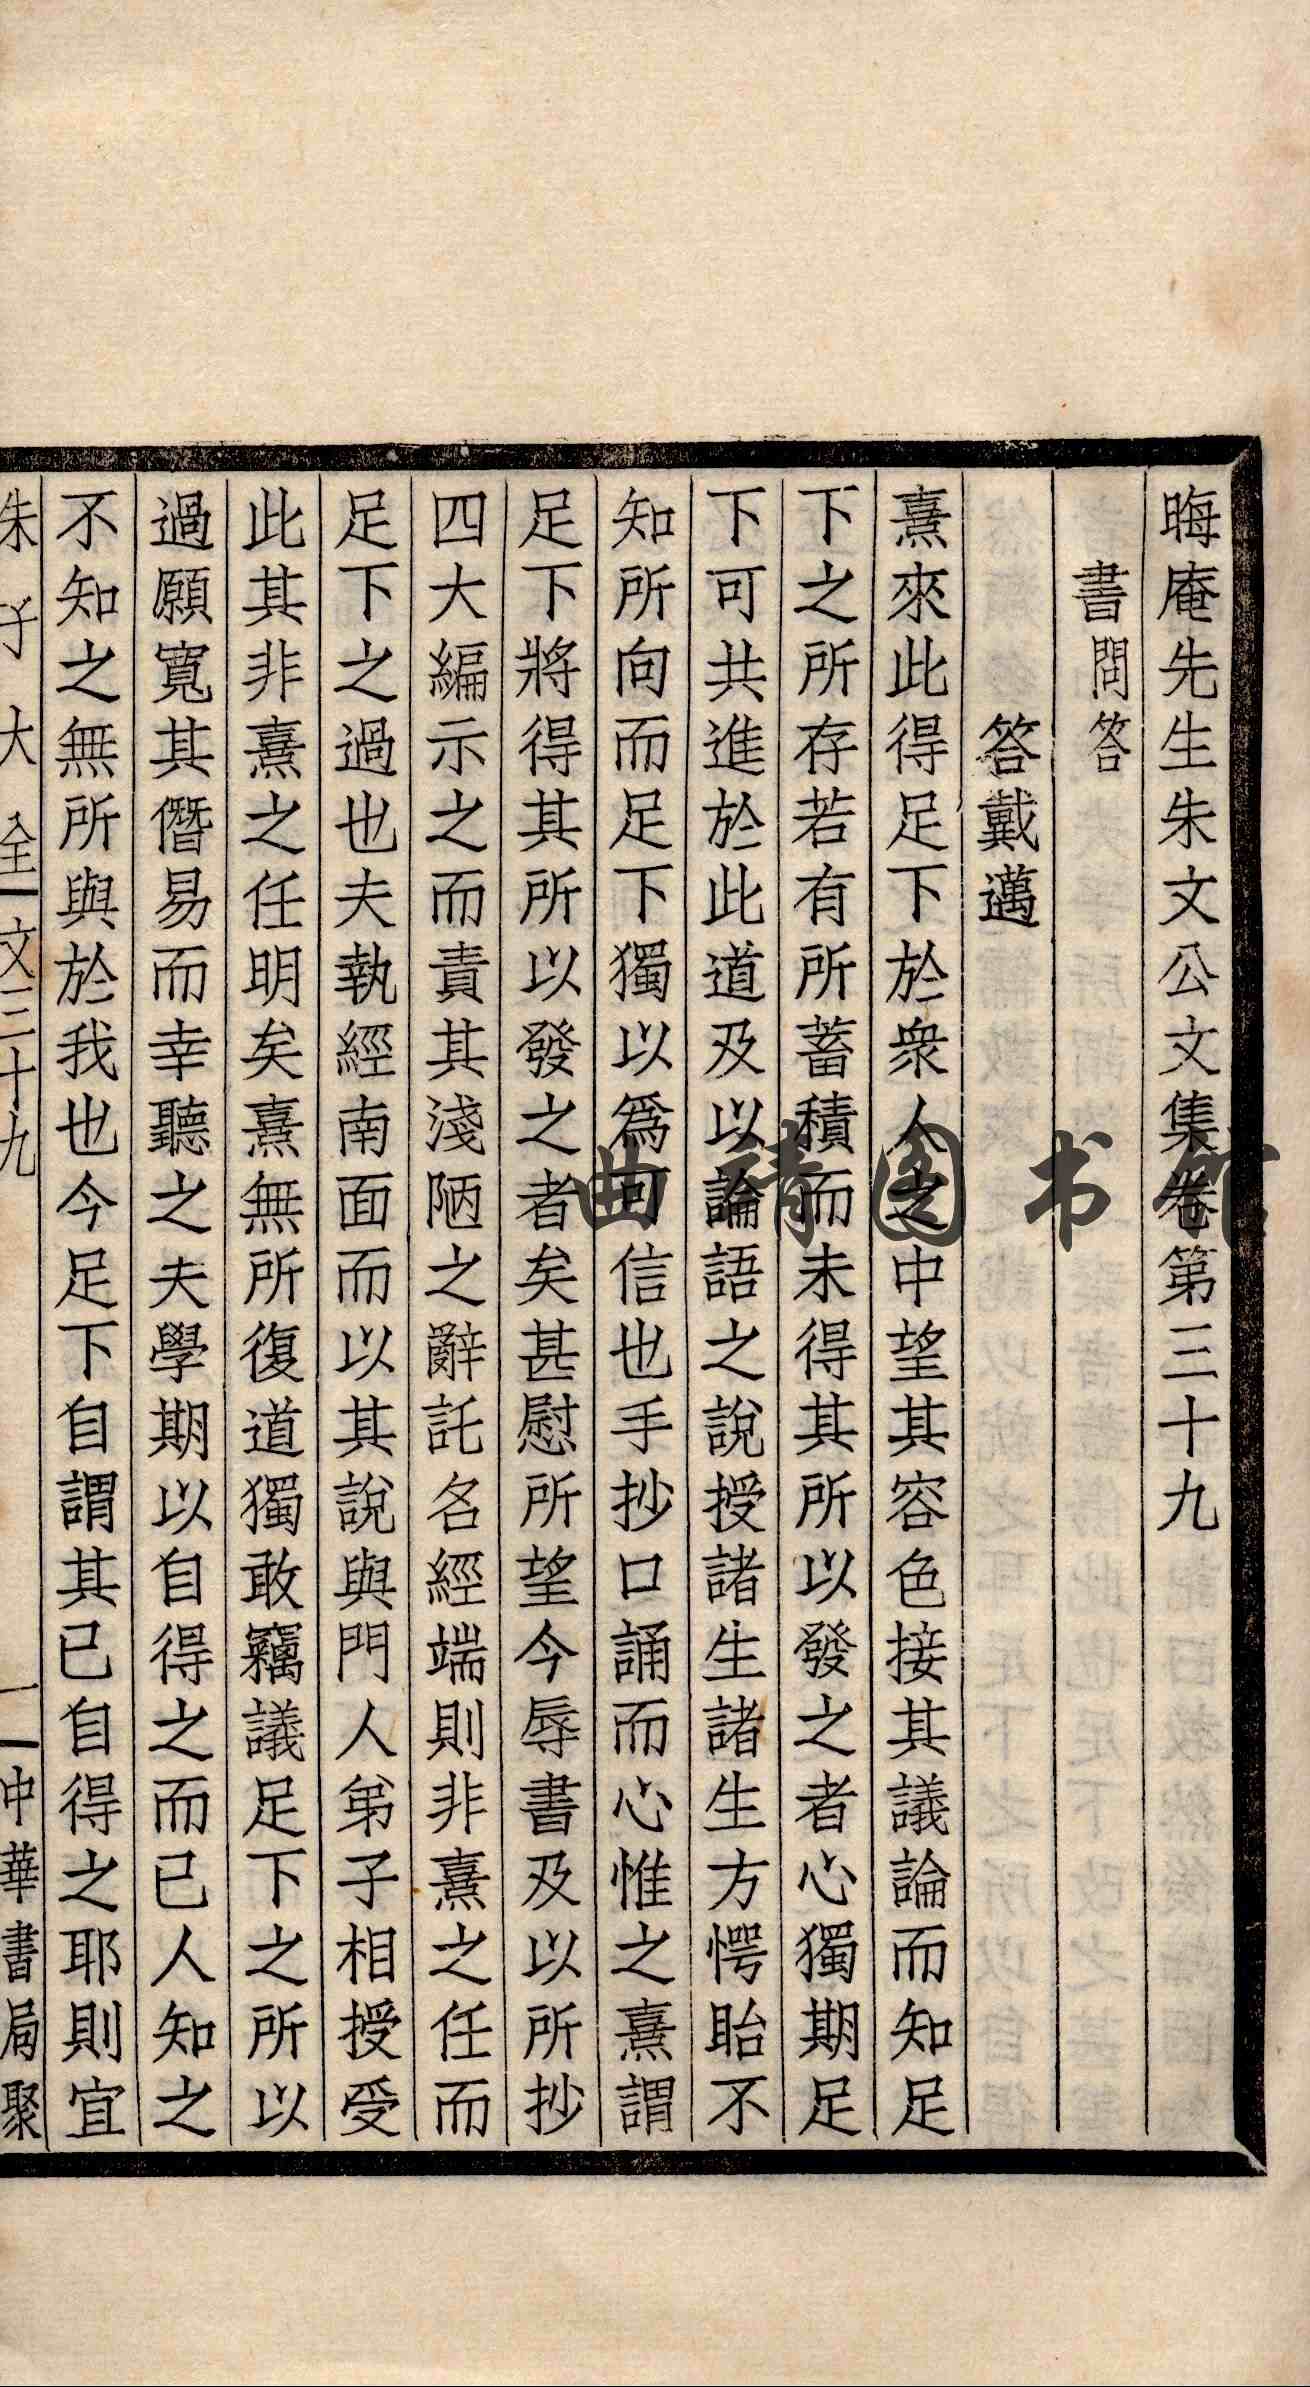 晦庵先生朱文公文集卷第三十九
書問答
答戴邁
熹來此得足下於衆人之中望其容色接其議論而知足
下之所存若有所蓄積而未得其所以發之者心獨期足
下可共進於此道及以論語之說授諸生諸生方愕眙不
知所向而足下獨以爲可信也手抄口誦而心惟之熹謂
足下將得其所以發之者矣甚慰所望今辱書及以所抄
四大編示之而責其淺陋之辭託名經端則非熹之任而
足下之過也夫執經南面而以其說與門人弟子相授受
此其非熹之任明矣熹無所復道獨敢竊議足下之所以
過願寬其僭易而幸聽之夫學期以自得之而已人知之
不知之無所與於我也今足下自謂其已自得之耶則宜
朱子大全 文三十九 一 中華書局聚
曲靖图书馆